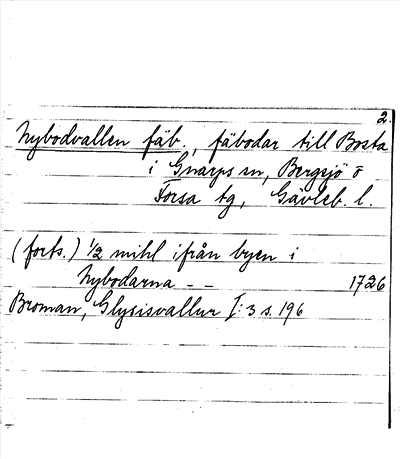 2.
Nybodvallen fäb., fäbodar till Bosta
i Gnarps sn, Bergsjö o
Forsa tg, Gävleb. l.
(forts.) 1/2 mihl ifrån byen i
Nybodarna - - 1726
Broman, Glysisvallur I:3 s. 196